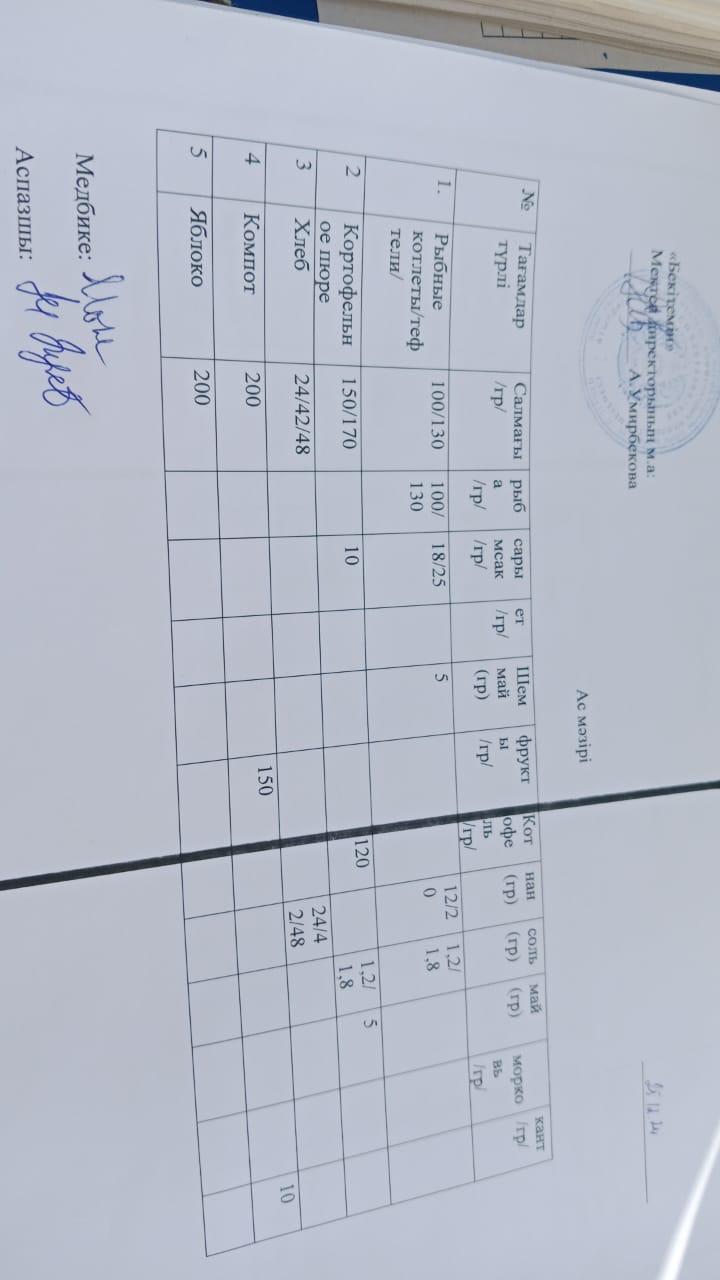 «Бекітемін»
Мектеп директорының м.а:
А.Умирбекова
25.12.24
Ас мәзірі
№ Тағамдар түрлі Салмағы /гр/ рыб а /гр/ сары мсак /гр/ ет /гр/ Шем май (гр) фрукт ы /гр/ Кот офе ль /гр/ нан (гр) соль (гр) май (гр) морко вь /гр/ кант /гр/
1. Рыбные котлеты/теф тели/ 100/130 100/ 130 18/25 5 12/2 0 1,2/ 1,8
2 Кортофельн ое пюре 150/170 10 120 1,2/ 1,8 5
3 Хлеб 24/42/48 24/4 2/48
4 Компот 200 150 10
5 Яблоко 200
Медбике:
Аспазшы: